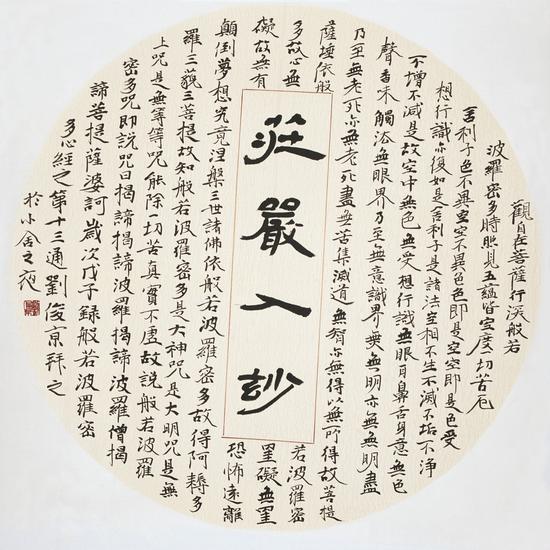 觀自在菩薩行深般若
波羅密多時照見五蘊皆空度一切苦厄
舍利子色不異空空不異色色即是空空即是色受
想行識亦復如是舍利子是諸法空相不生不滅不垢不淨
不增不減是故空中無色無受想行識無眼耳鼻舌身意無色
聲香味觸法無眼界乃至無意識界無無明亦無無明盡
乃至無老死亦無老死盡無苦集滅道無智亦無得以無所得故菩提
薩埵依般
若波羅密
多故心無
罣礙無罣
礙故無有
恐怖遠離
莊嚴入玅
顛倒夢想究竟涅槃三世諸佛依般若波羅密多故得阿耨多
羅三藐三菩提故知般若波羅密多是大神咒是大明咒是無
上咒是無等等咒能除一切苦真實不虛故說般若波羅
密多咒即說咒曰揭諦揭諦波羅揭諦波羅僧揭
諦菩提薩婆訶歲次戊子錄般若波羅密
多心經之第十三通劉俊京拜之
於小舍之夜